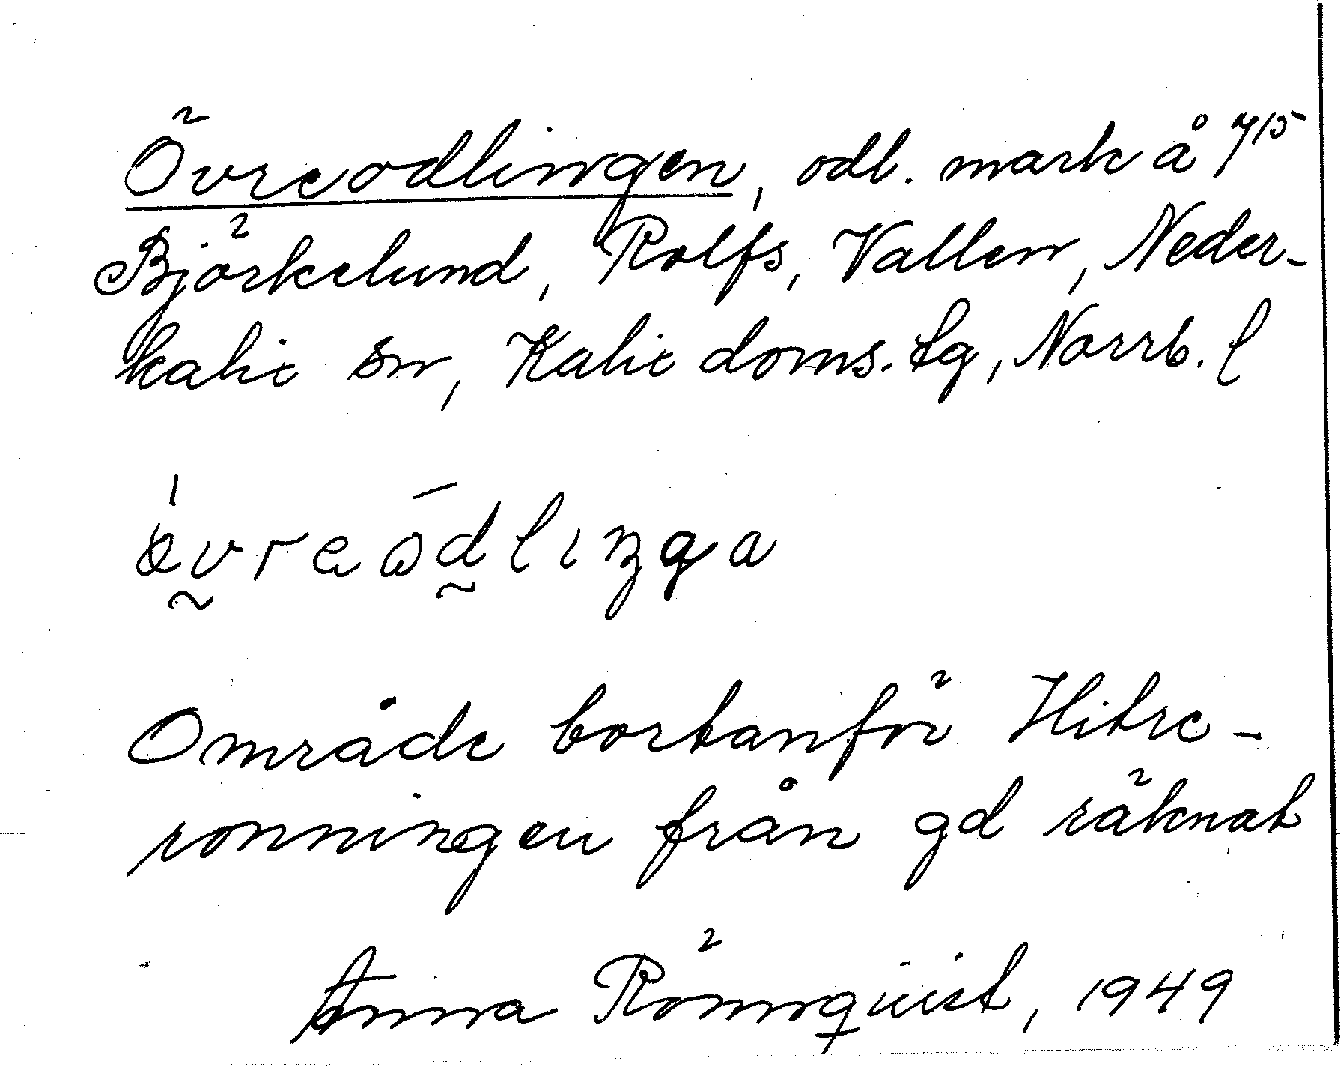 Övreodlingen, odl. mark å 7/15
Björkelund, Rolfs, Vallen, Neder-
kalix sn, Kalix doms. tg, Norrb. l
Område bortanför Hitre-
ronningen från gd räknat
Anna Rönnquist, 1949